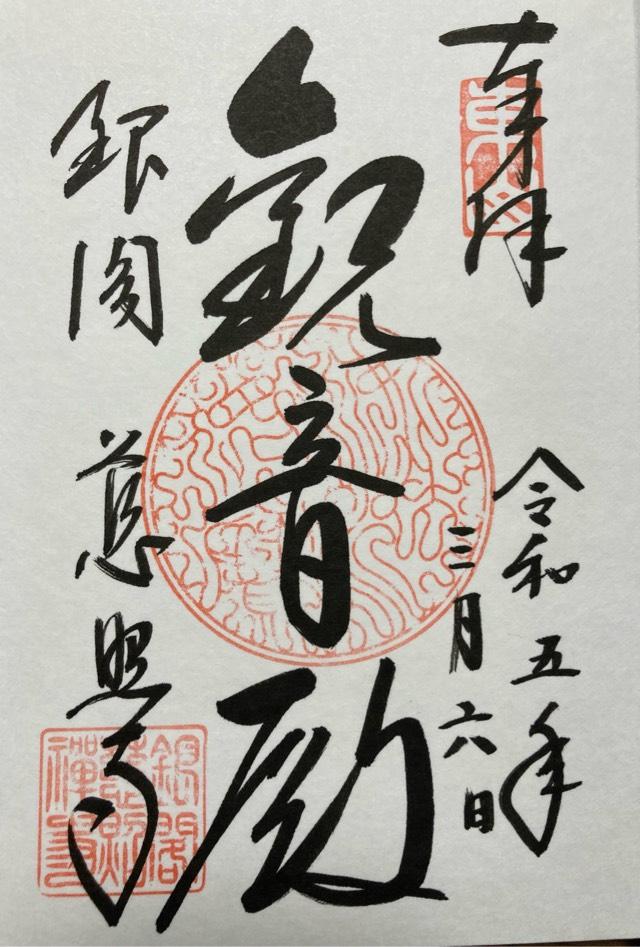 奉拝
令和五年
三月六日
観音殿
銀閣
慈照寺